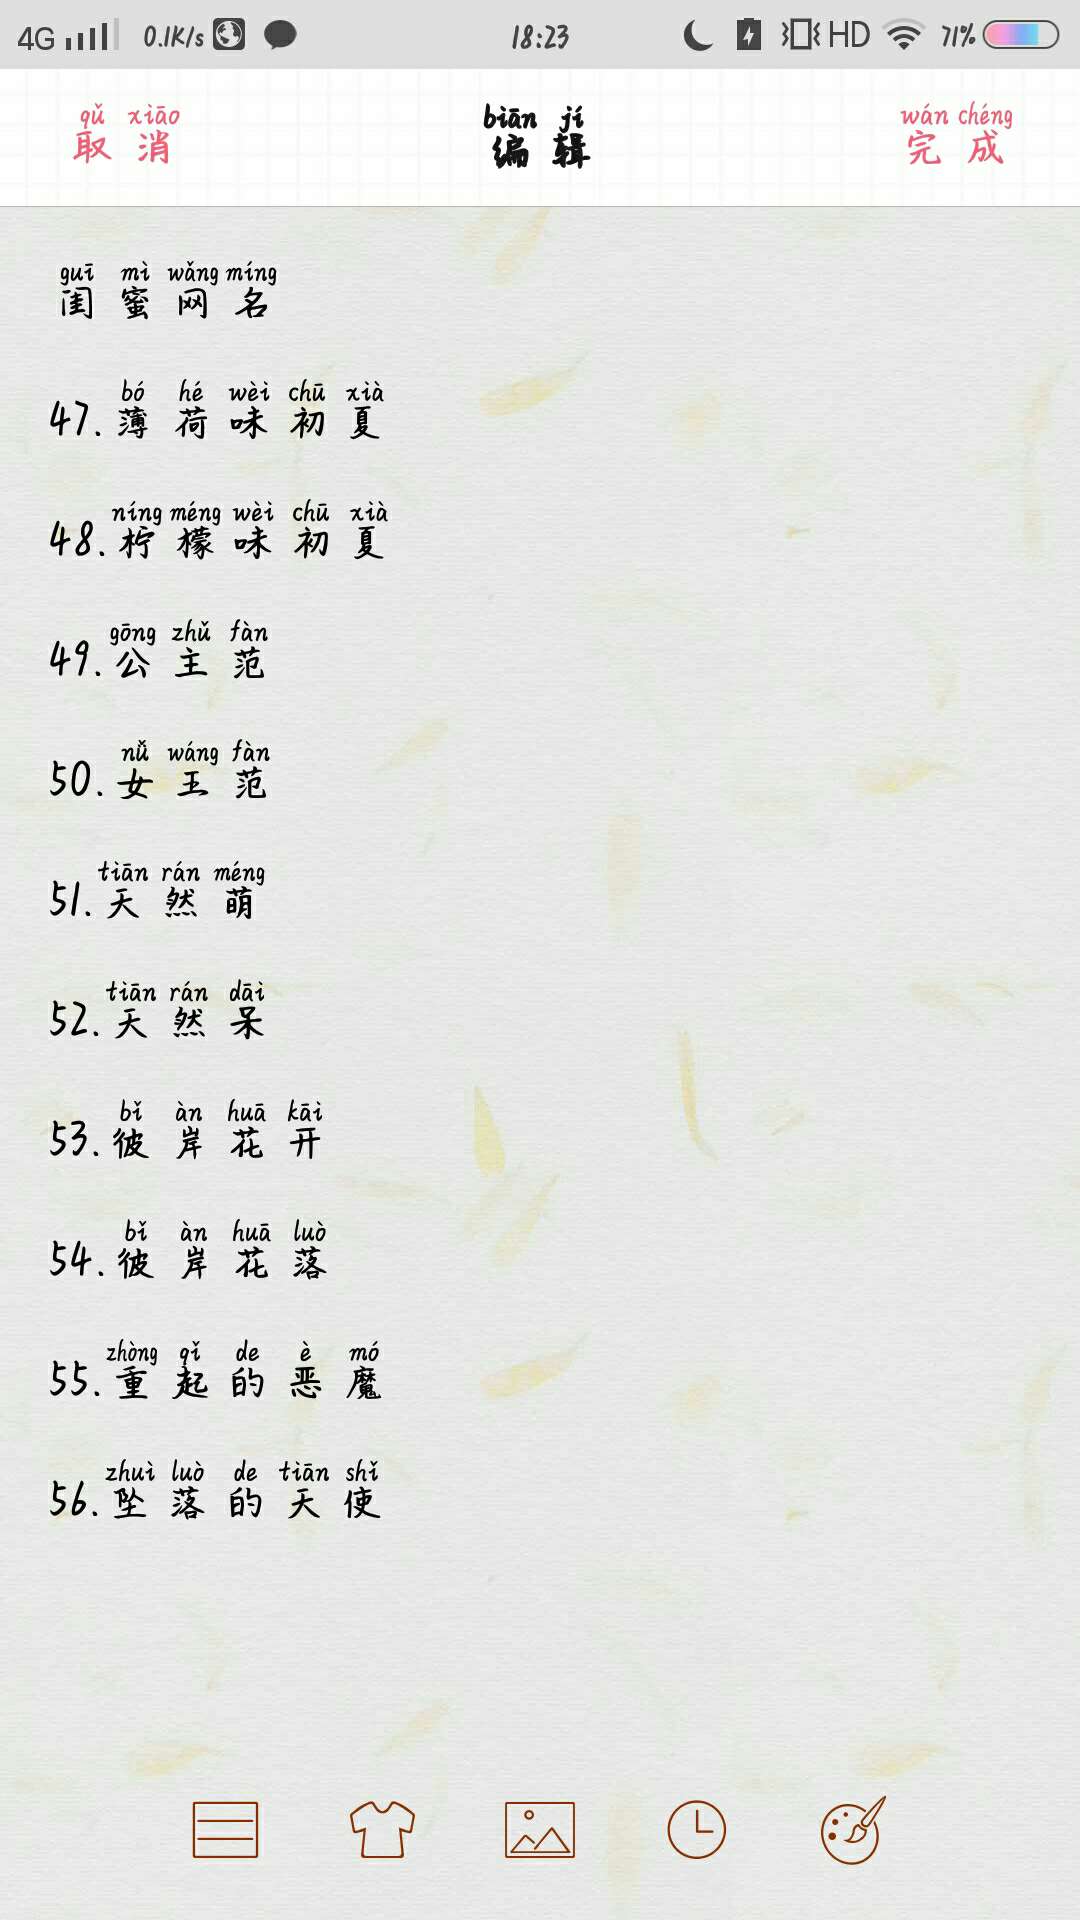 4G 0.1K/s 18:23 HD 71%
qǔ xiāo biān jí wán chéng
取消 编辑 完成
guī mì wǎng míng
闺蜜网名
bó hé wèi chū xià
47.薄荷味初夏
níng méng wèi chū xià
48.柠檬味初夏
gōng zhǔ fàn
49.公主范
nǚ wáng fàn
50.女王范
tiān rán méng
51.天然萌
tiān rán dāi
52.天然呆
bǐ àn huā kāi
53.彼岸花开
bǐ àn huā luò
54.彼岸花落
zhòng qǐ de è mó
55.重起的恶魔
zhuì luò de tiān shǐ
56.坠落的天使